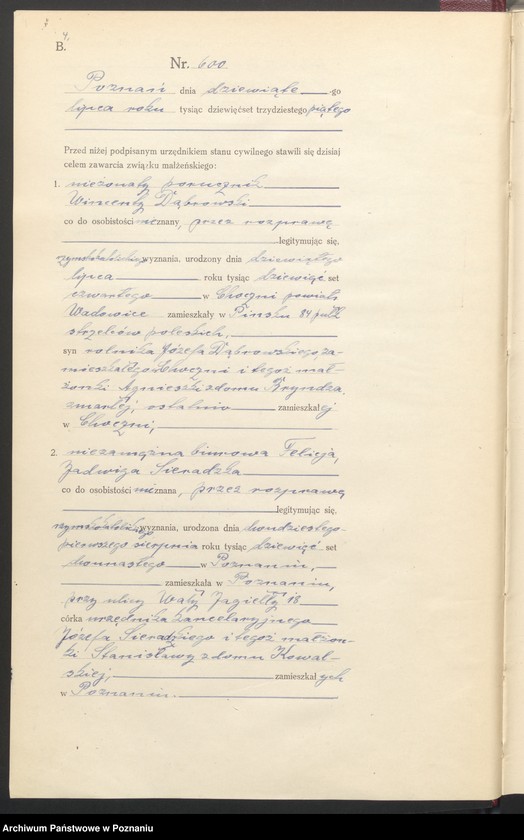 4.
B.
Nr. 600
Poznań dnia dziewiąte -go
lipca roku tysiąc dziewięćset trzydziestego piątego
Przed niżej podpisanym urzędnikiem stanu cywilnego stawili się dzisiaj
celem zawarcia związku małżeńskiego:
1. nieżonaty porucznik
Wincenty Dąbrowski
co do osobistości nieznany, przez rozprawę
legitymując się,
rzymskokatolickiego wyznania, urodzony dnia dziewiątego
lipca roku tysiąc dziewięć set
czwartego w Choczni powiatu
Wadowice zamieszkały w Pińsku 84 pułk
strzelców poleskich,
syn rolnika Józefa Dąbrowskiego za-
mieszkałego w Choczni i tegoż mał-
żonki Agnieszki z domu Bryndza,
zmarłej, ostatnio zamieszkałej
w Choczni,
2. niezamężna biurowa Felicja,
Jadwiga Sieradzka
co do osobistości nieznana, przez rozprawę
legitymując się,
rzymskokatolickiego wyznania, urodzona dnia dwudziestego
pierwszego sierpnia roku tysiąc dziewięć set
dwunastego w Poznaniu,
zamieszkała w Poznaniu,
przy ulicy Wały Jagiełły 18
córka urzędnika kancelaryjnego
Józefa Sieradzkiego i tegoż małżon-
ki Stanisławy z domu Kowal-
skiej, zamieszkałych
w Poznaniu.
Archiwum Państwowe w Poznaniu
szukajwarchiwach.pl